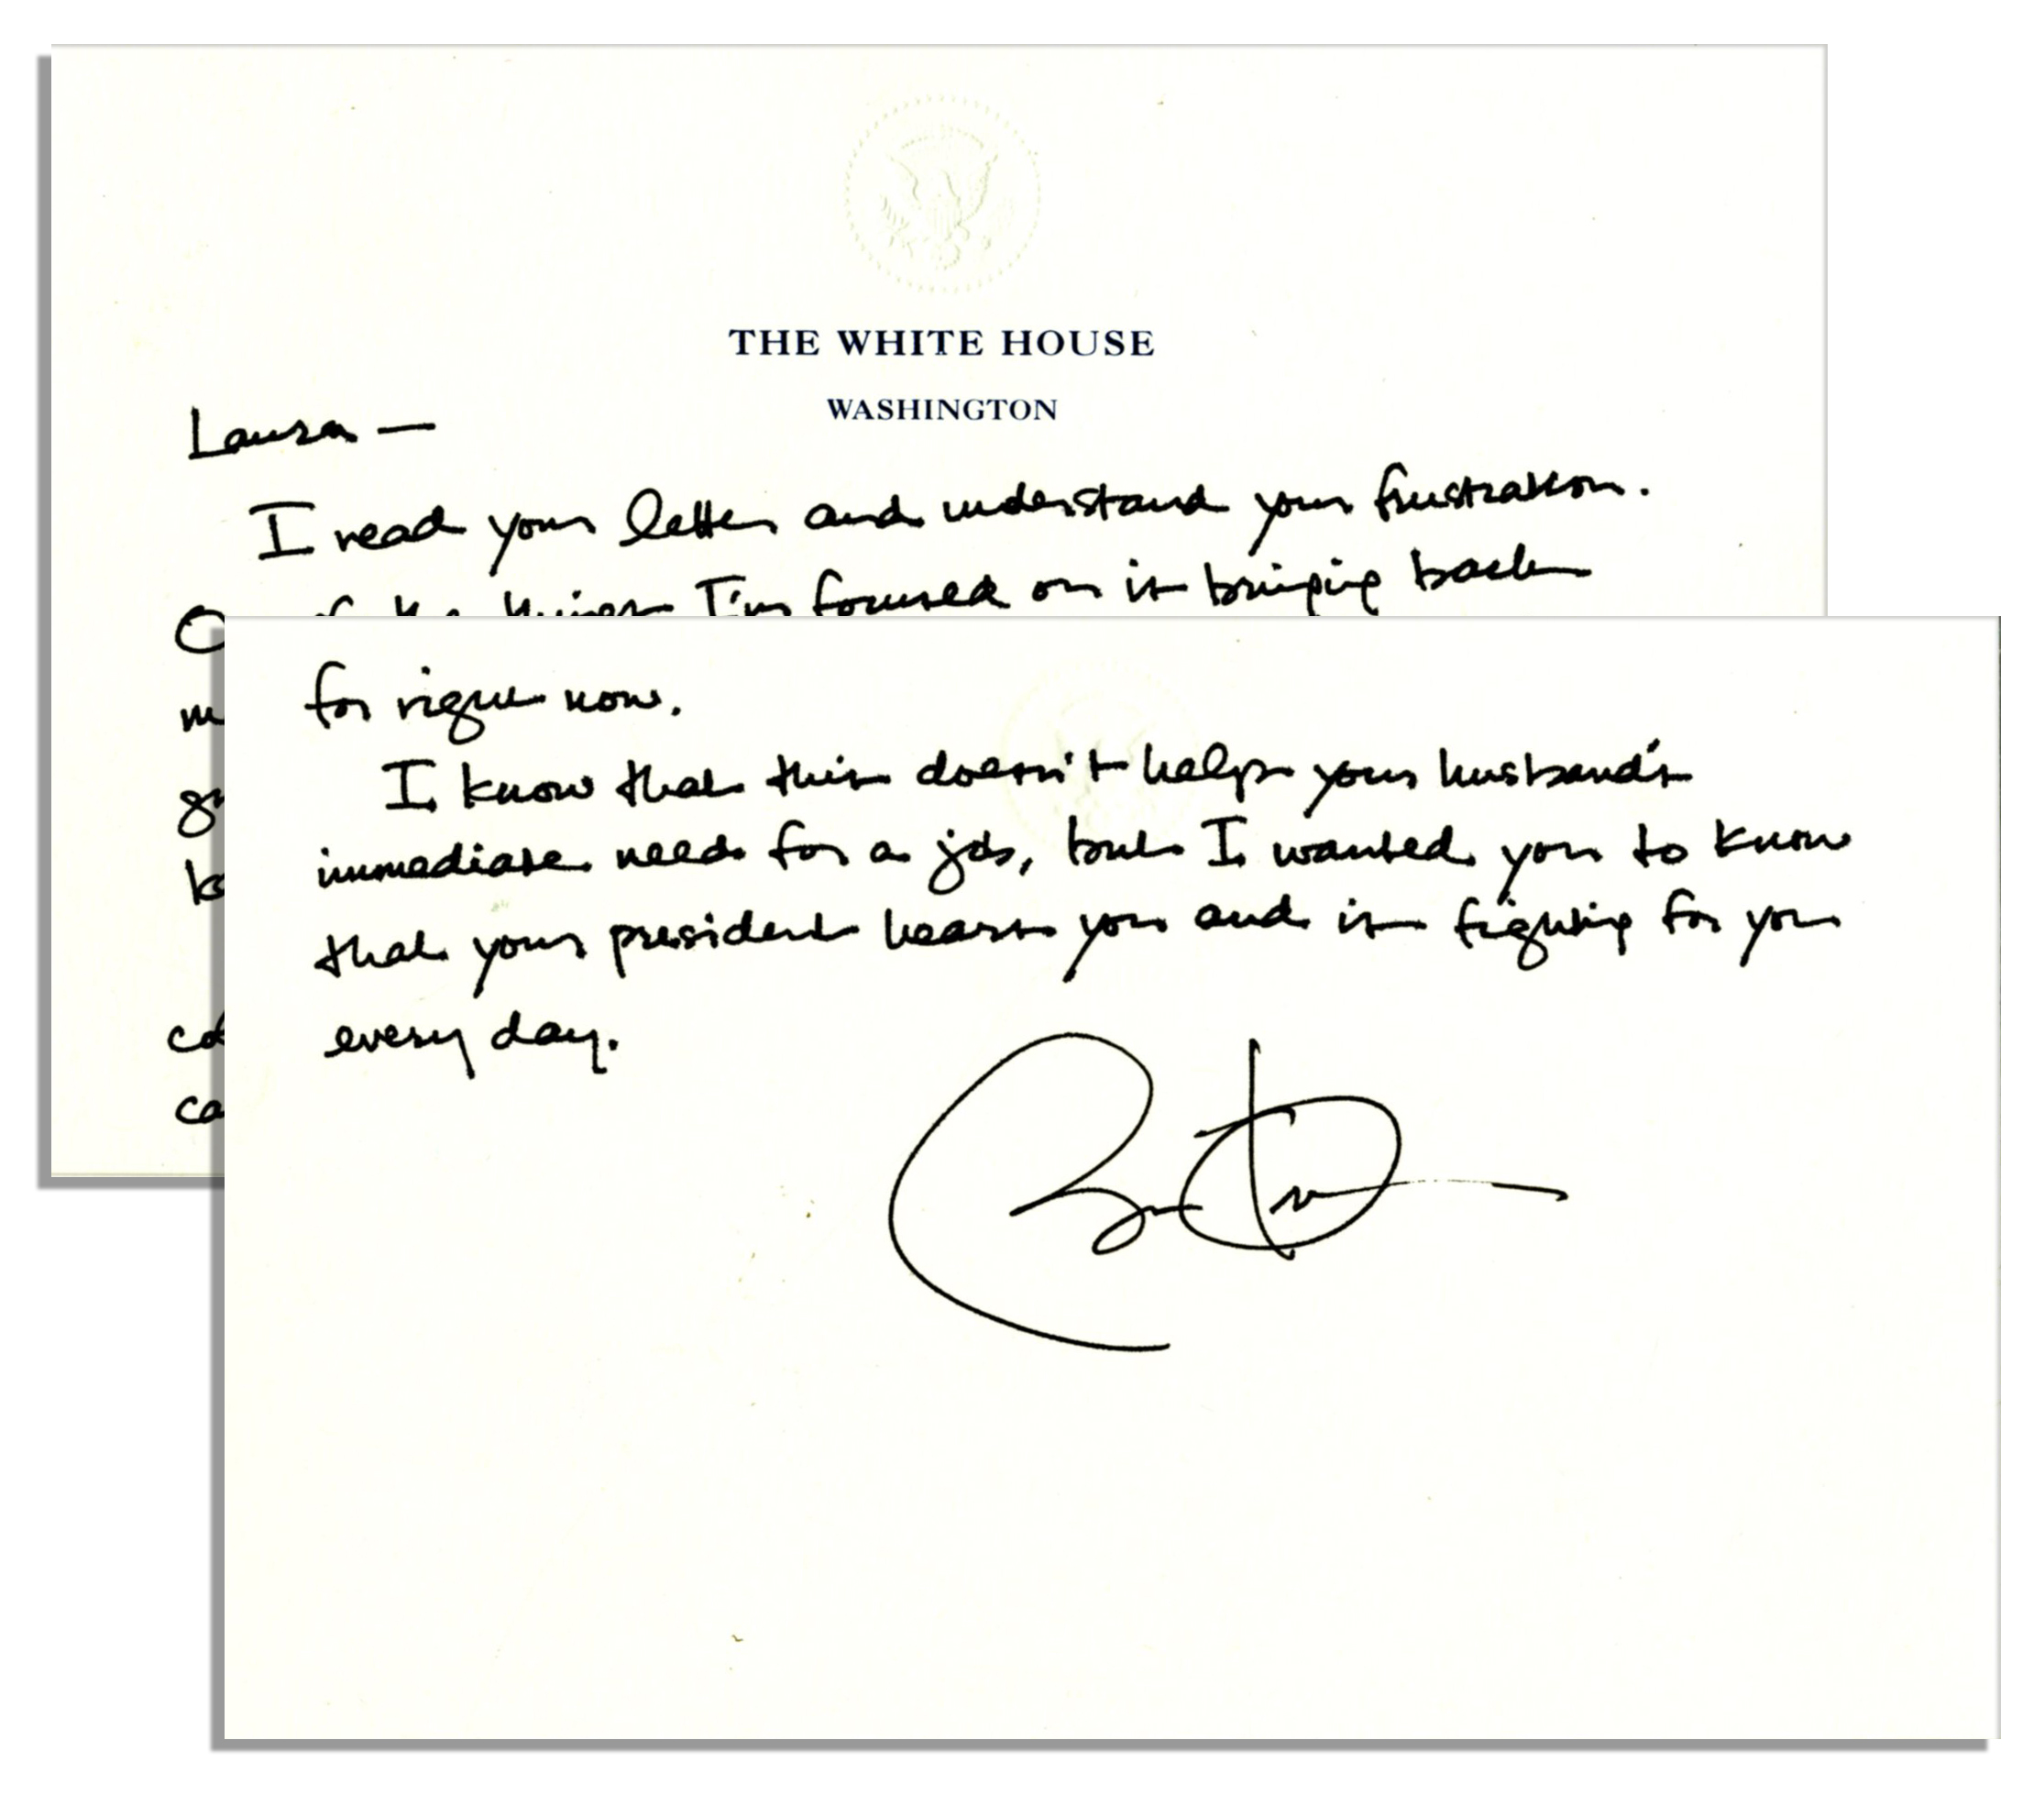 THE WHITE HOUSE
WASHINGTON
Laura —
I read your letter and understand your frustration.
One of the things I'm focused on is bringing back
for right now.
I know that this doesn't help your husband's
immediate need for a job, but I wanted you to know
that your president hears you and is fighting for you
every day.